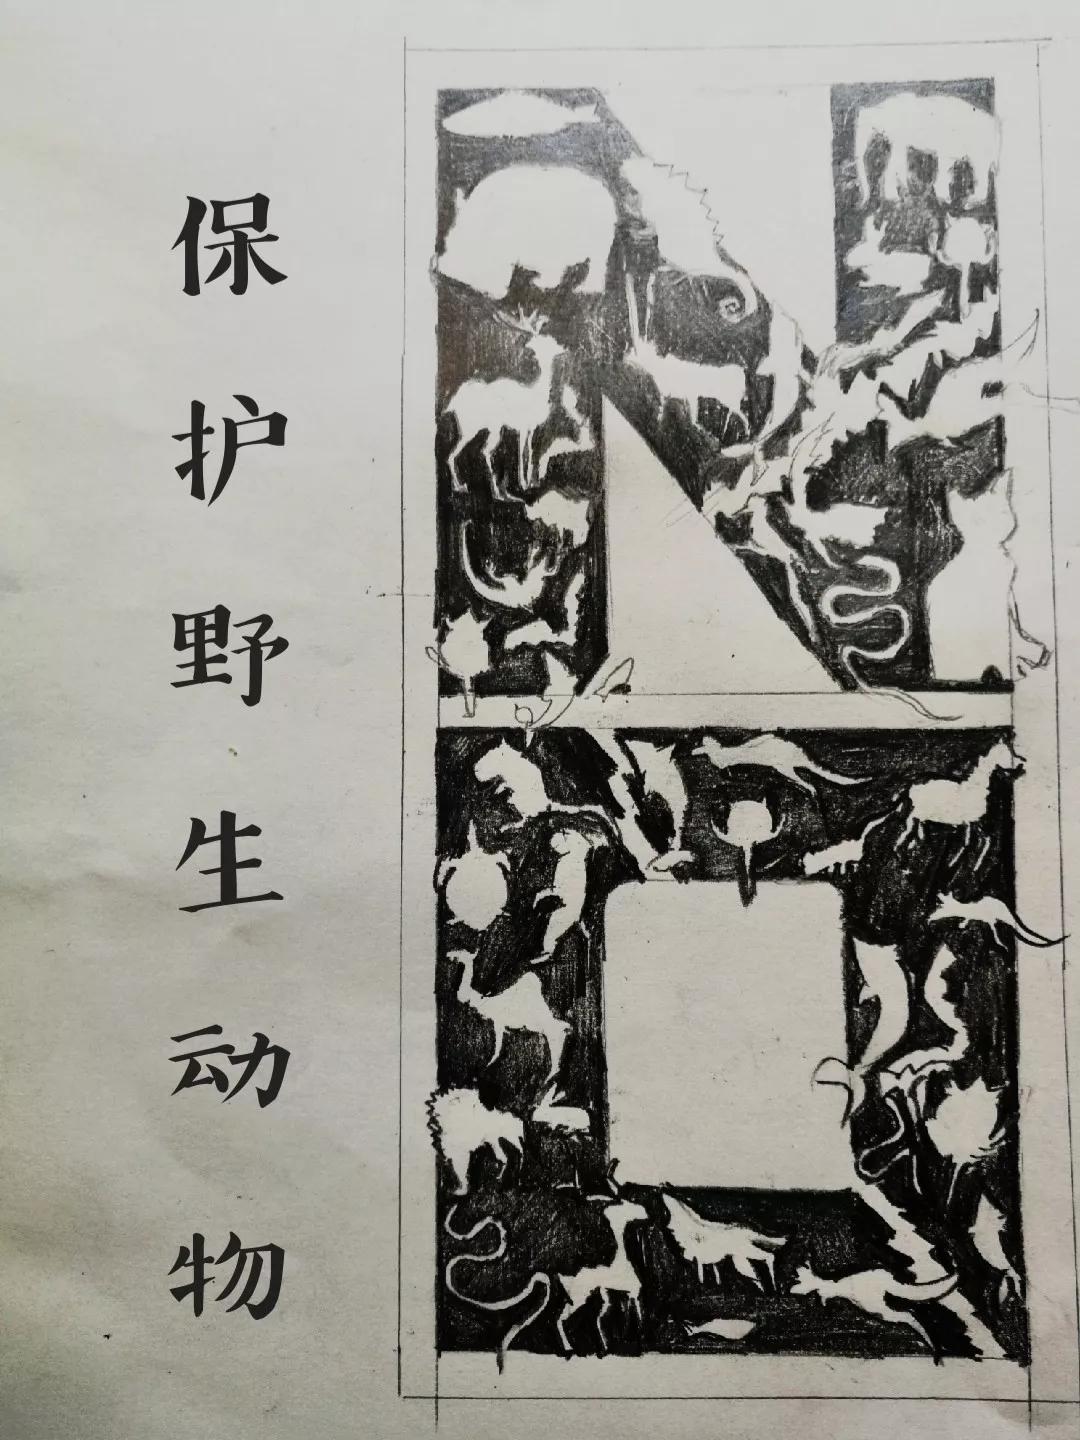 保护野生动物
NO